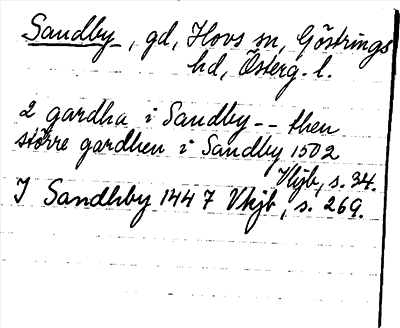 Sandby, gd, Hovs sn, Göstrings
hd, Österg. l.
2 gardha i Sandby -- then
större gardhen i Sandby 1502
Vkjb, s. 34.
I Sandhby 1447 Vkjb, s. 269.